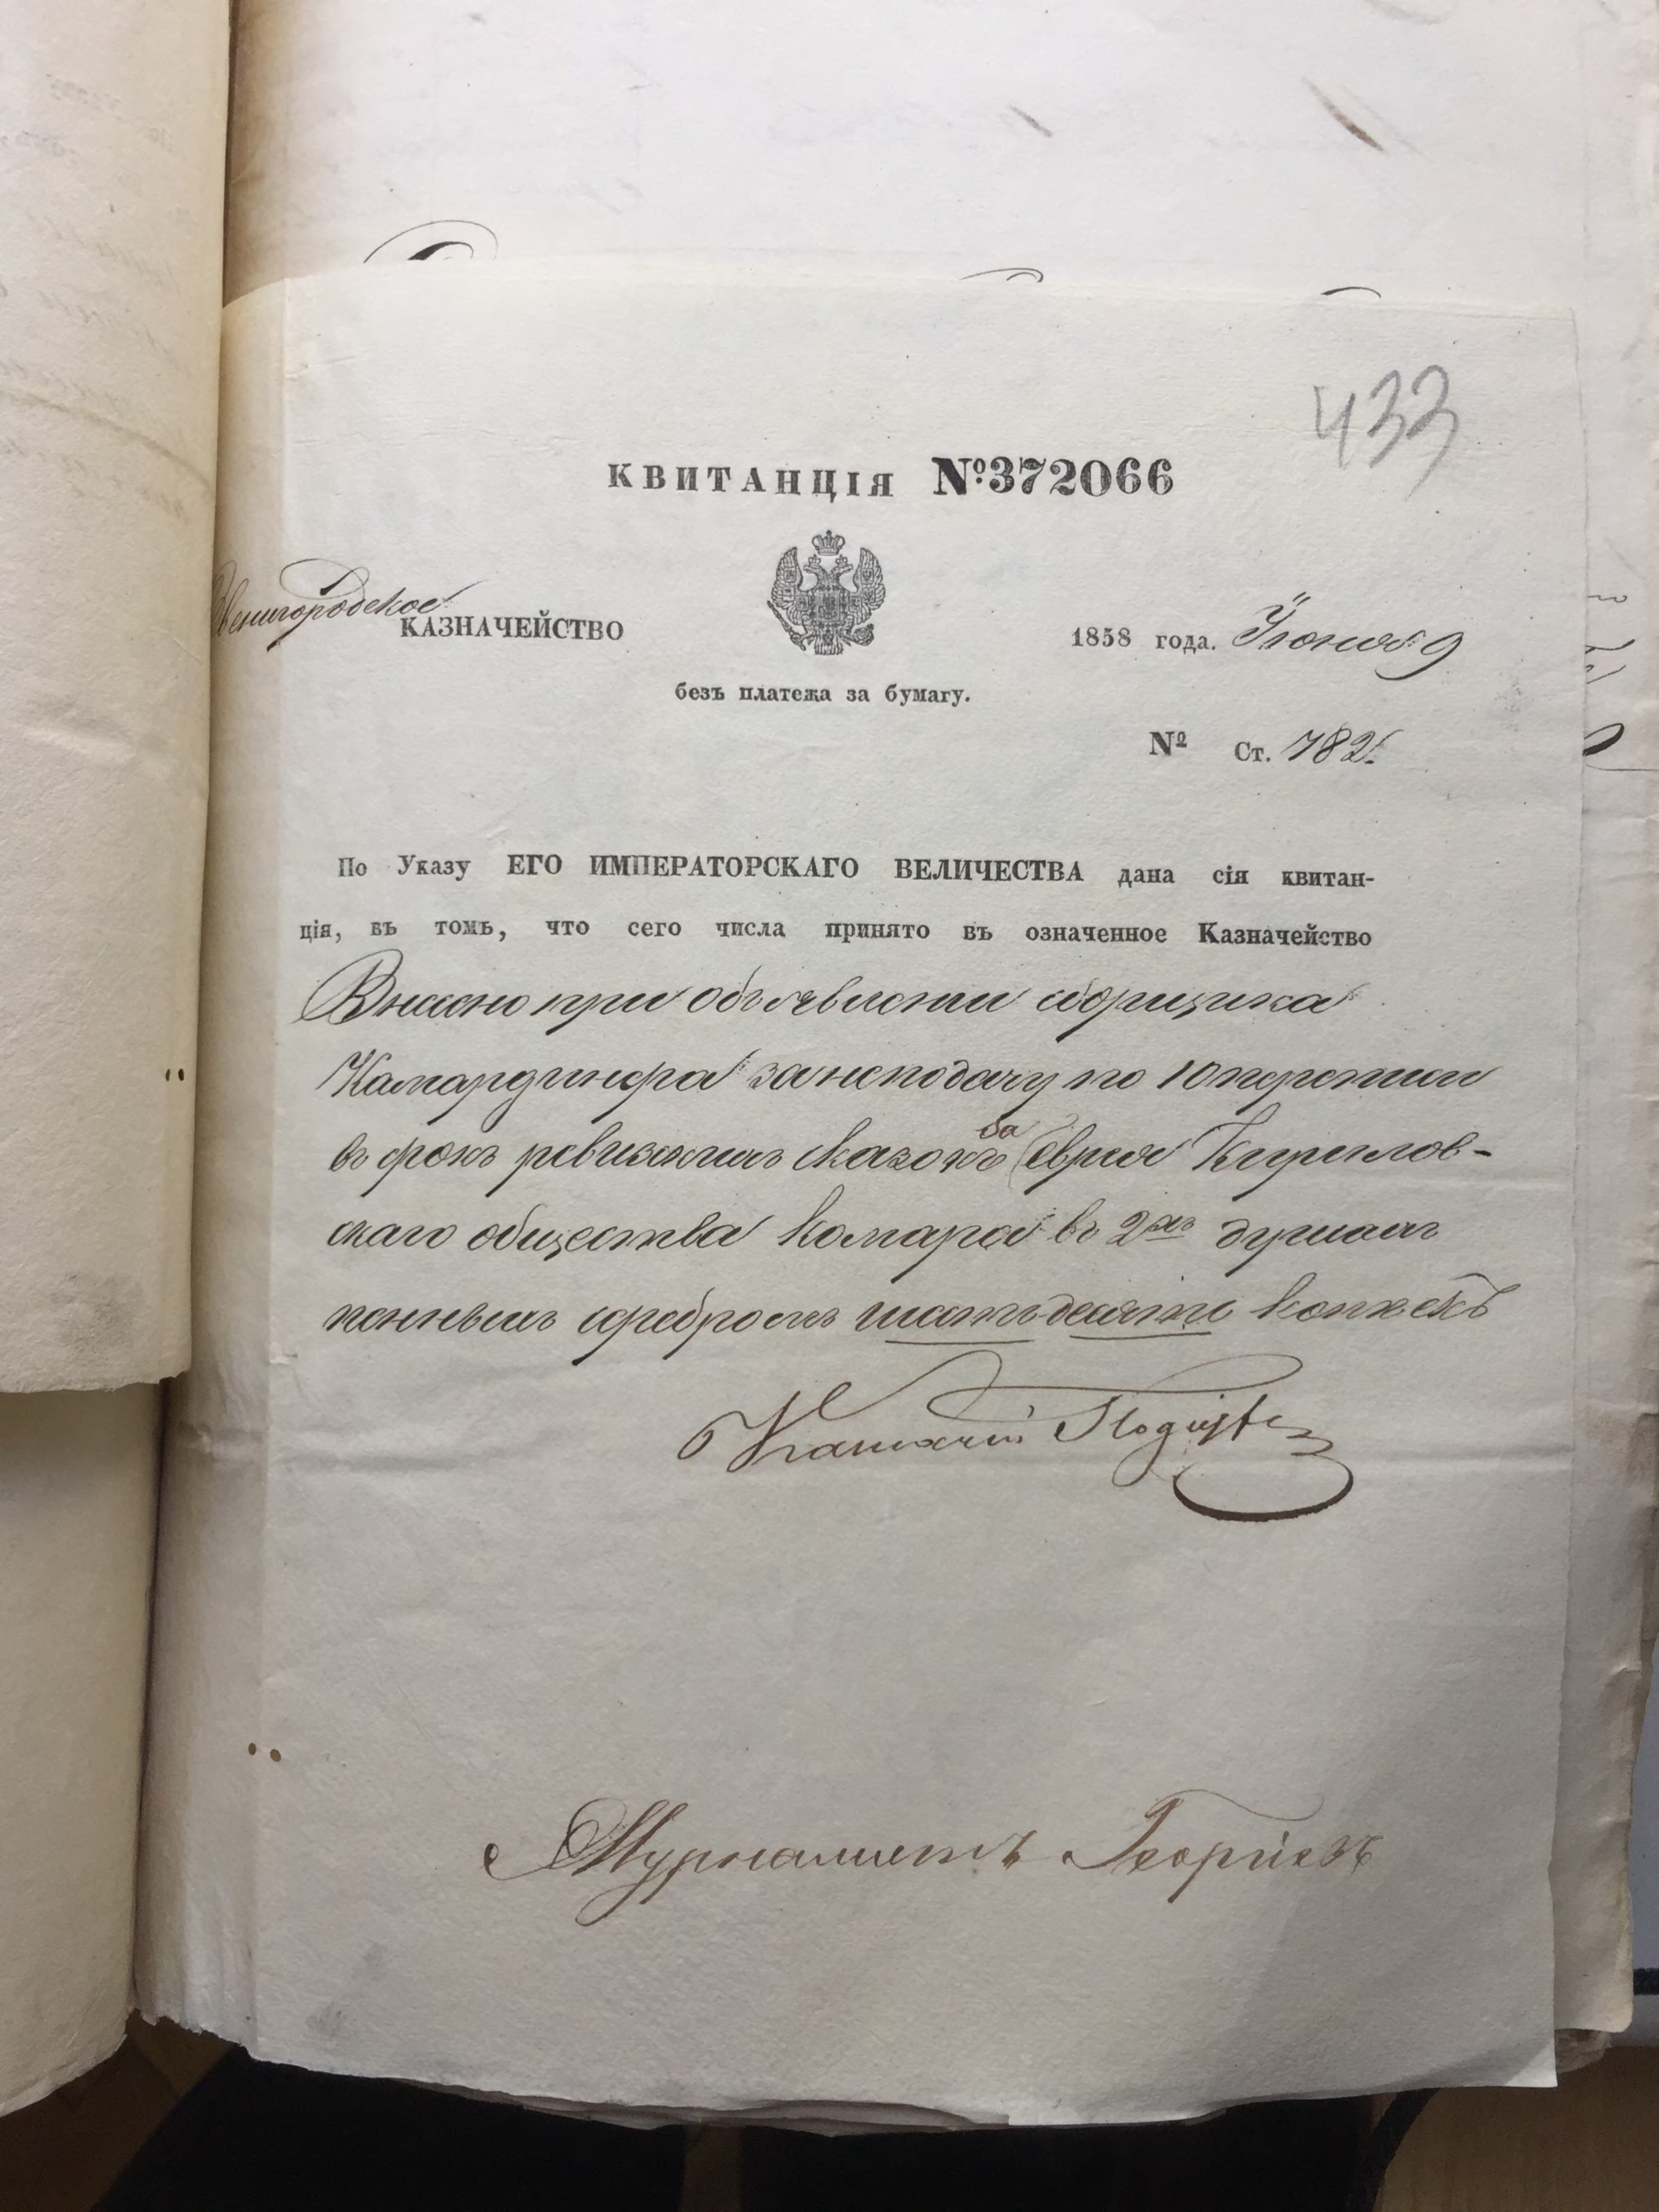 433
КВИТАНЦІЯ №372066
Звенигородское
КАЗНАЧЕЙСТВО
1858 года. Іюня 9
безъ платежа за бумагу.
№ Ст. 782.
По Указу ЕГО ИМПЕРАТОРСКАГО ВЕЛИЧЕСТВА дана сія квитан-
ція, въ томъ, что сего числа принято въ означенное Казначейство
Внесено при объявленіи сборщика
за неподачу по 10 переписи
въ срокъ ревизскихъ сказокъ за Еврея Кирилов-
скаго общества Комара въ 2хъ душахъ
пенныхъ серебромъ шестьдесятъ копѣекъ
Казначей
Журналистъ Георгіевъ